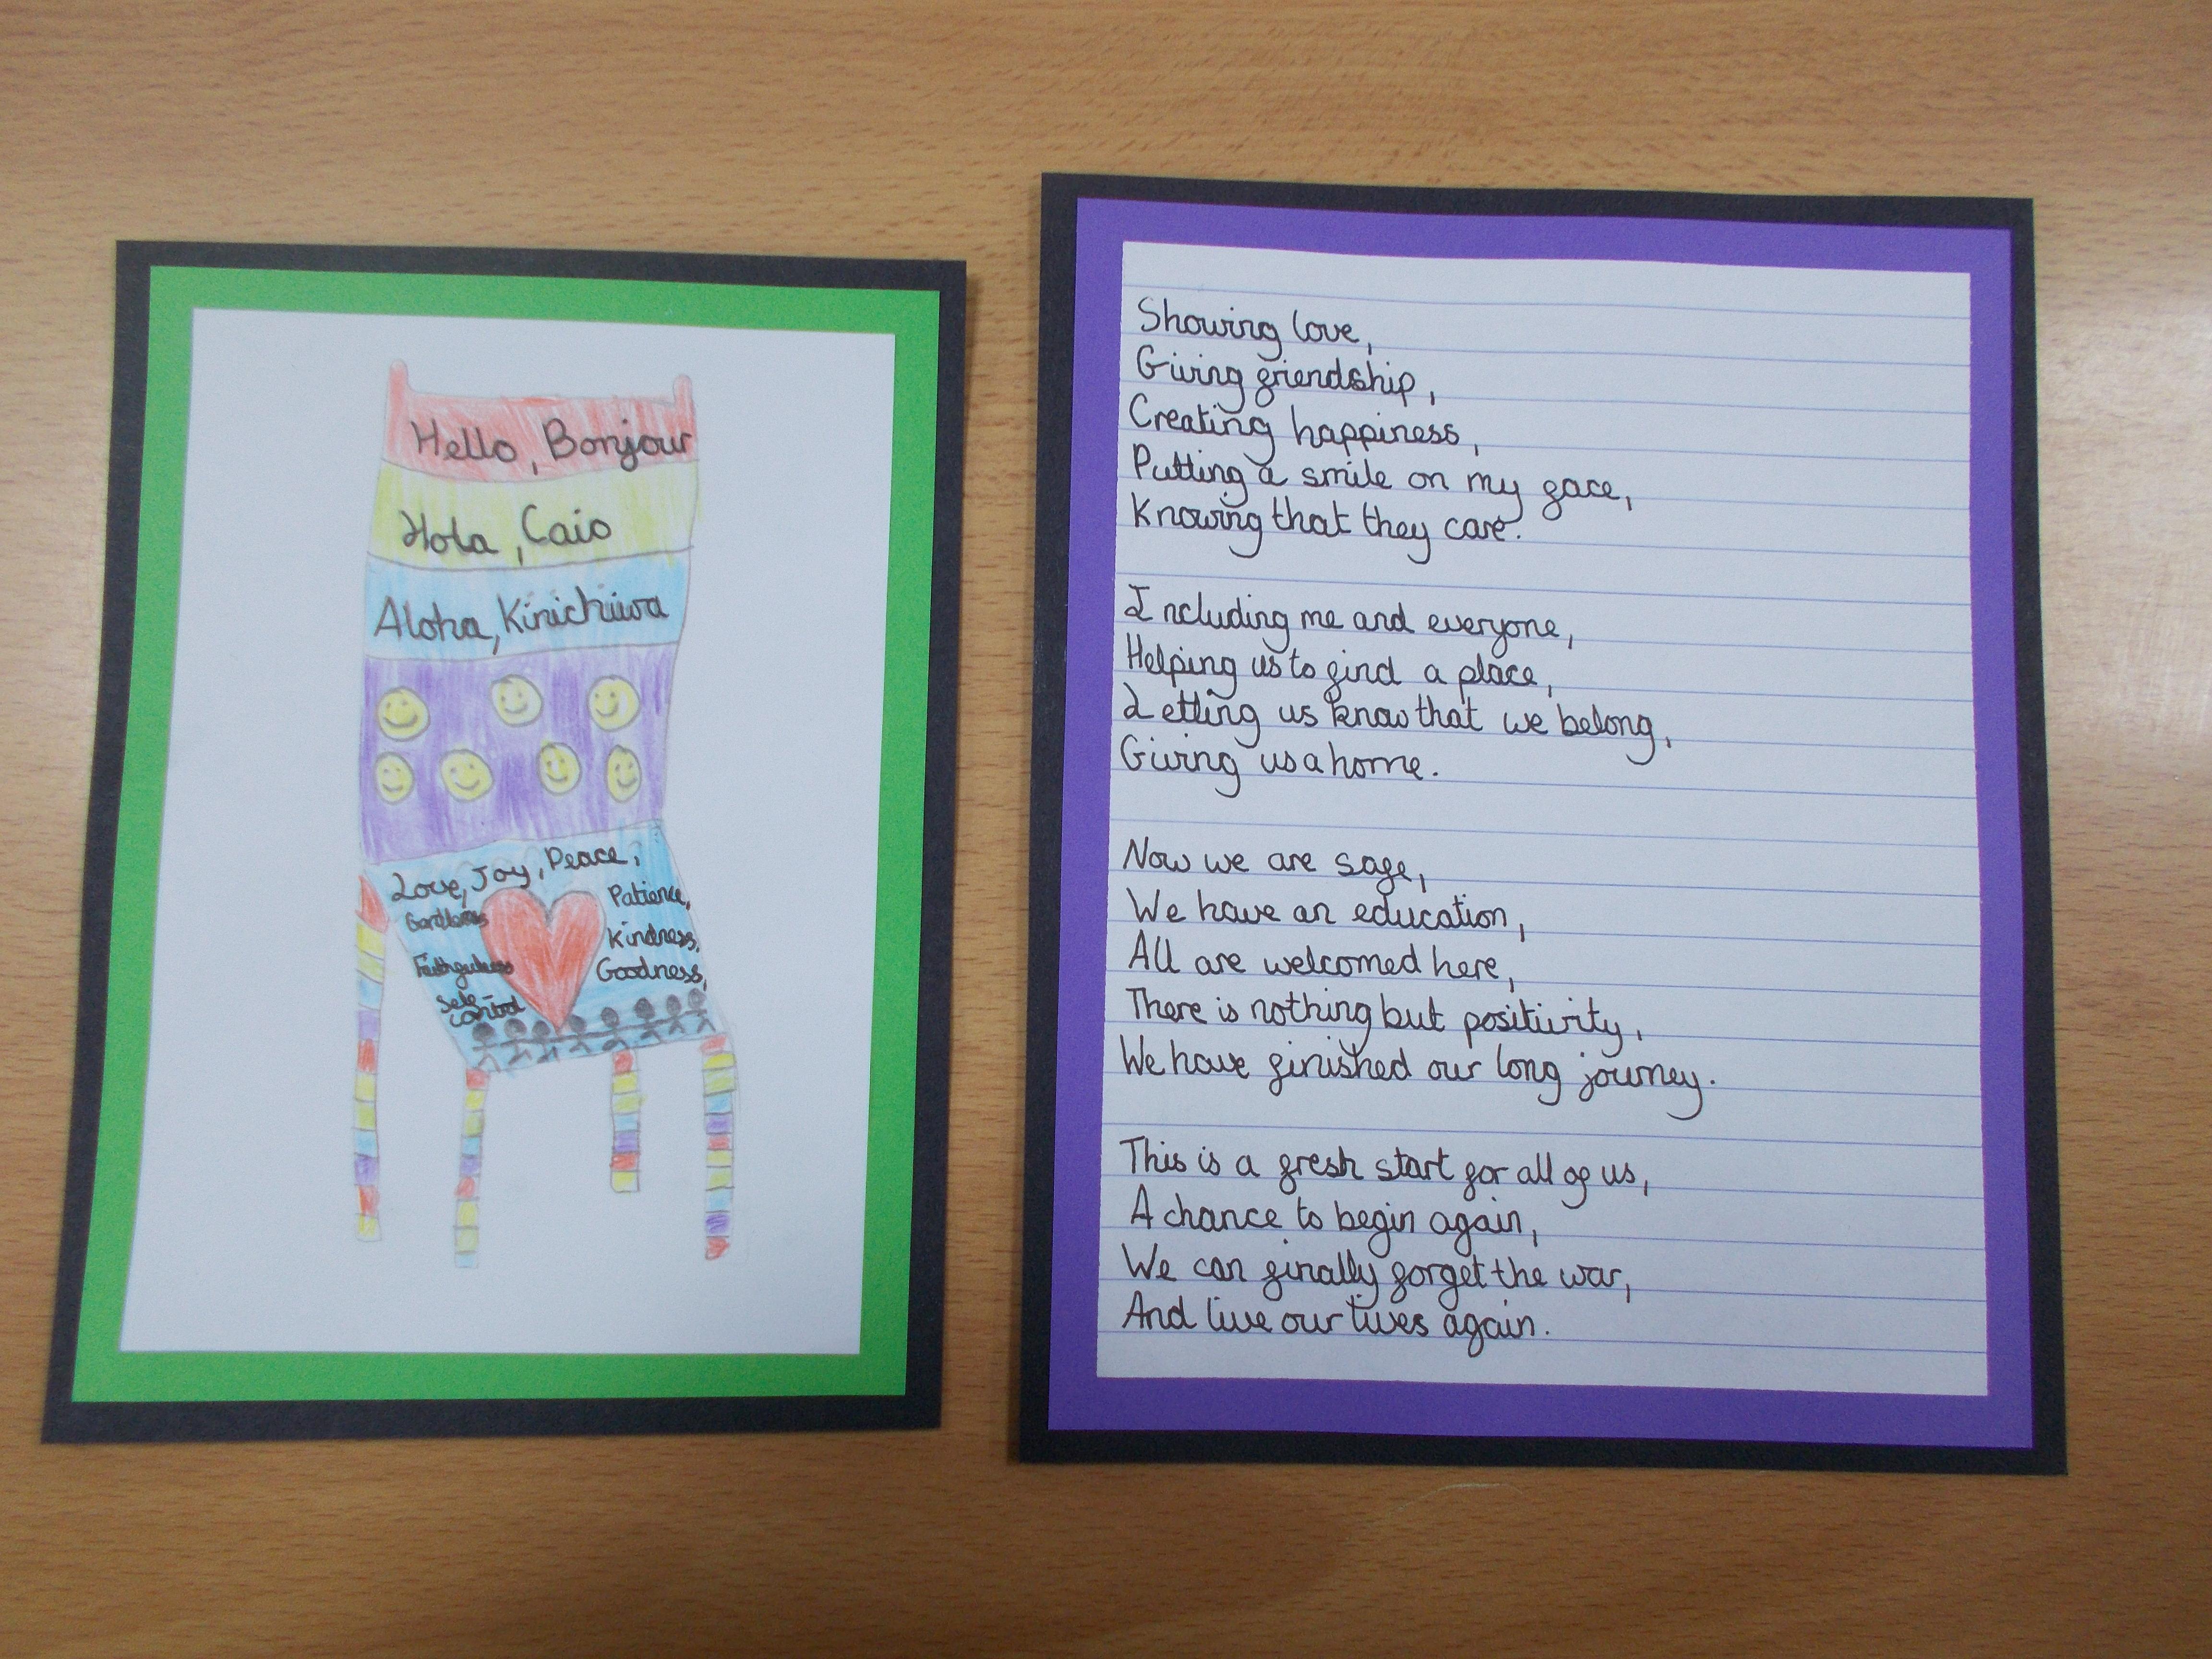 Hello, Bonjour
Hola, Caio
Aloha, Kinichiwa
Love, Joy, Peace,
Patience,
Kindness,
Goodness,
Gentleness
Faithfulness
Self-
control
Showing love,
Giving friendship,
Creating happiness,
Putting a smile on my face,
Knowing that they care.
Including me and everyone,
Helping us to find a place,
Letting us know that we belong,
Giving us a home.
Now we are safe,
We have an education,
All are welcomed here,
There is nothing but positivity,
We have finished our long journey.
This is a fresh start for all of us,
A chance to begin again,
We can finally forget the war,
And live our lives again.